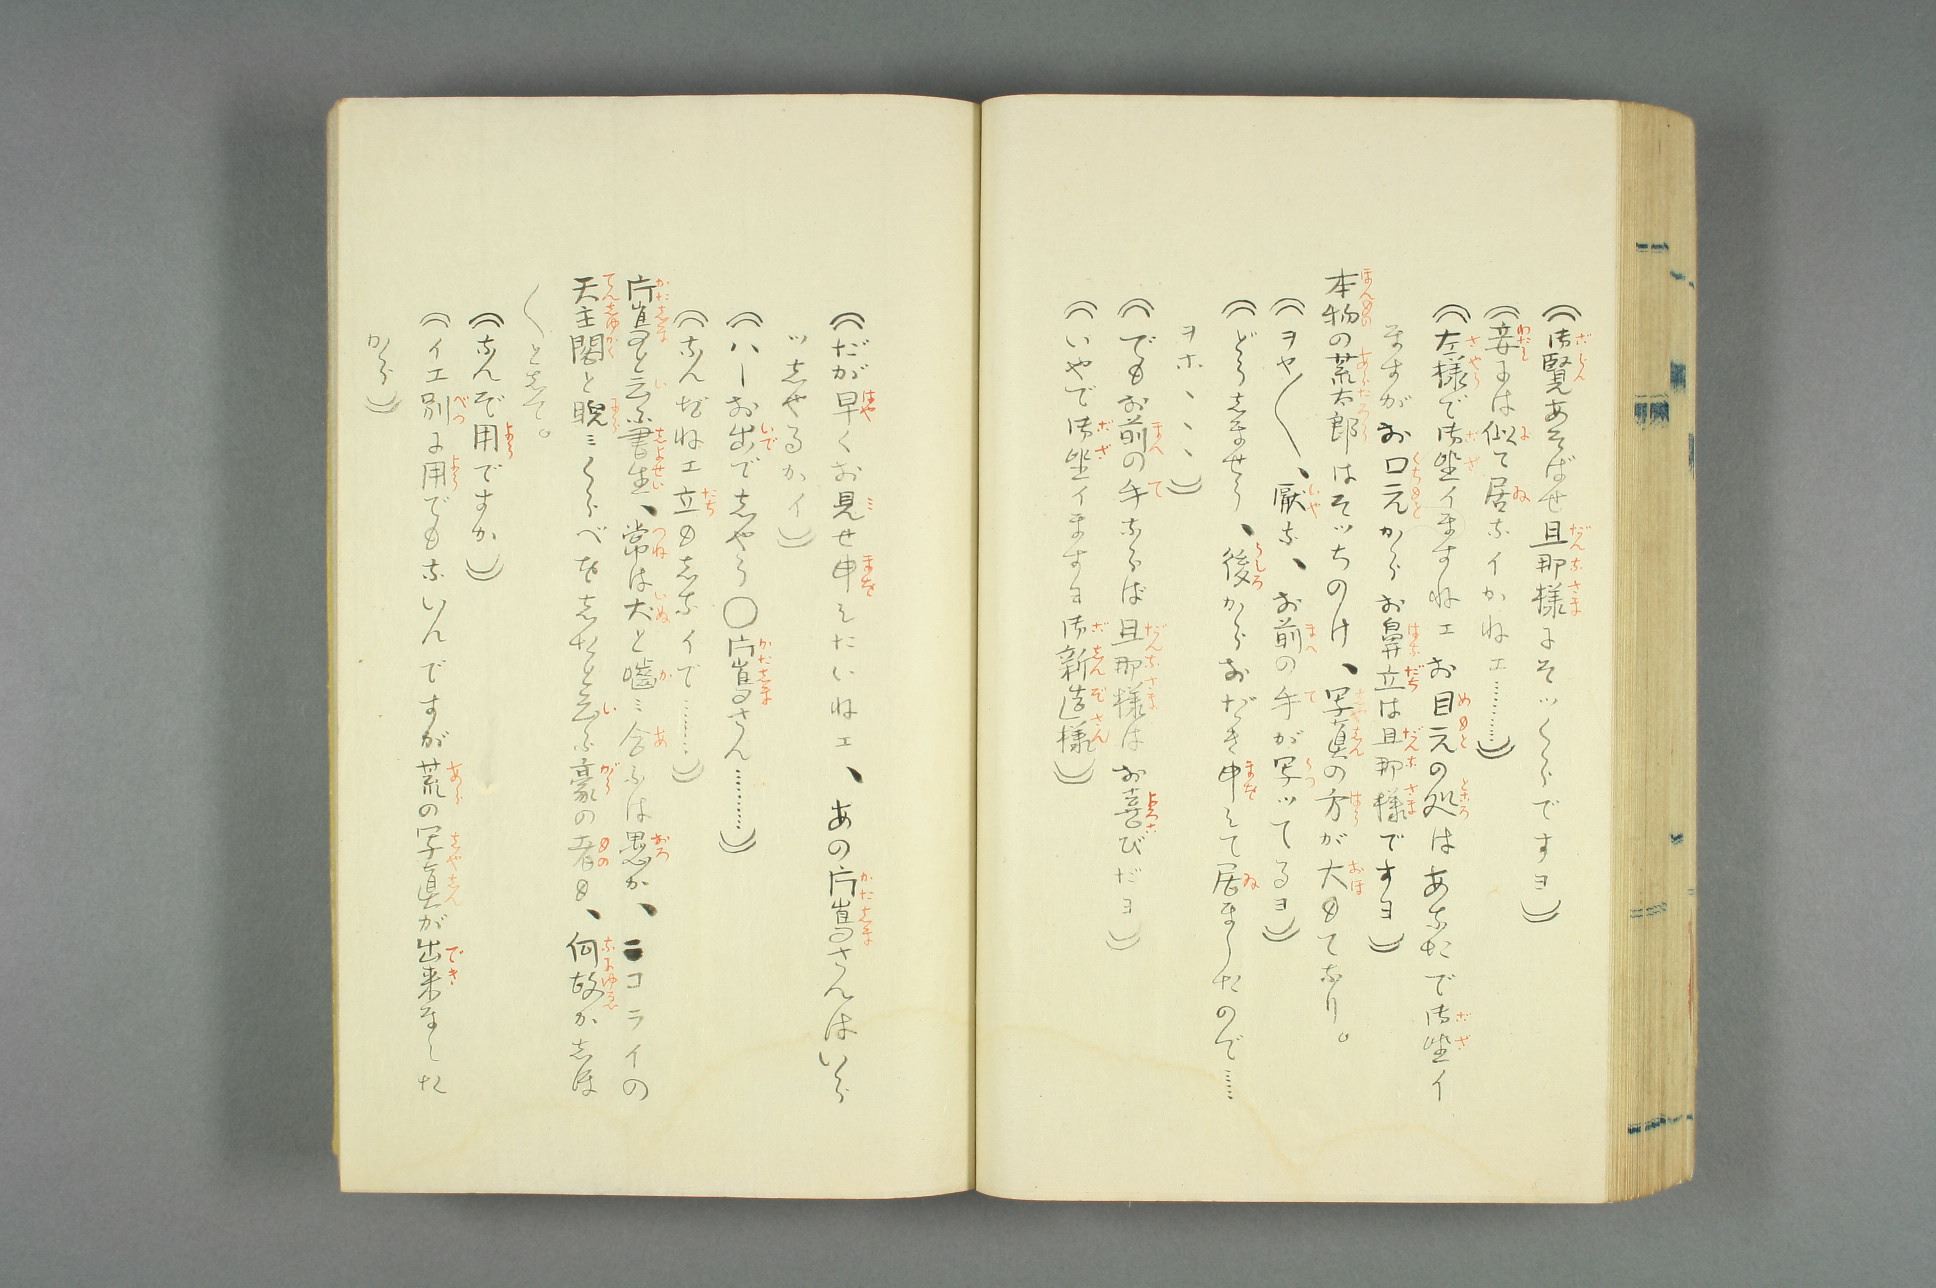 ((御覧あそばせ旦那様にそッくらですヨ))
((妾には似て居ないかねエ………))
((左様で御坐イますねエお目元の処はあなたで御坐イ
ますがお口元からお鼻立は旦那様ですヨ))
本物の荒太郎はそッちのけ、写真の方が大もてなり。
((ヲヤ〳〵、厭な、お前の手が写ッてるヨ))
((どうしませう、後からおだき申して居ましたので……
ヲホヽヽヽ))
((でもお前の手ならば旦那様はお喜びだヨ))
((いやで御坐イますヨ御新造様))
((だが早くお見せ申したいねエ、あの片嶌さんはいら
ッしやるかイ))
((ハーお出でしやう〇片嶌さん………))
((なんだねエ立もしないで………))
片嶌と云ふ書生、常は犬と嚙ミ合ふは愚か、ニコライの
天主閣と睨ミくらべをしたと云ふ豪の者も、何故かしほ
〳〵として。
((なんぞ用ですか))
((イエ別に用でもないんですが荒の写真が出来ました
から))